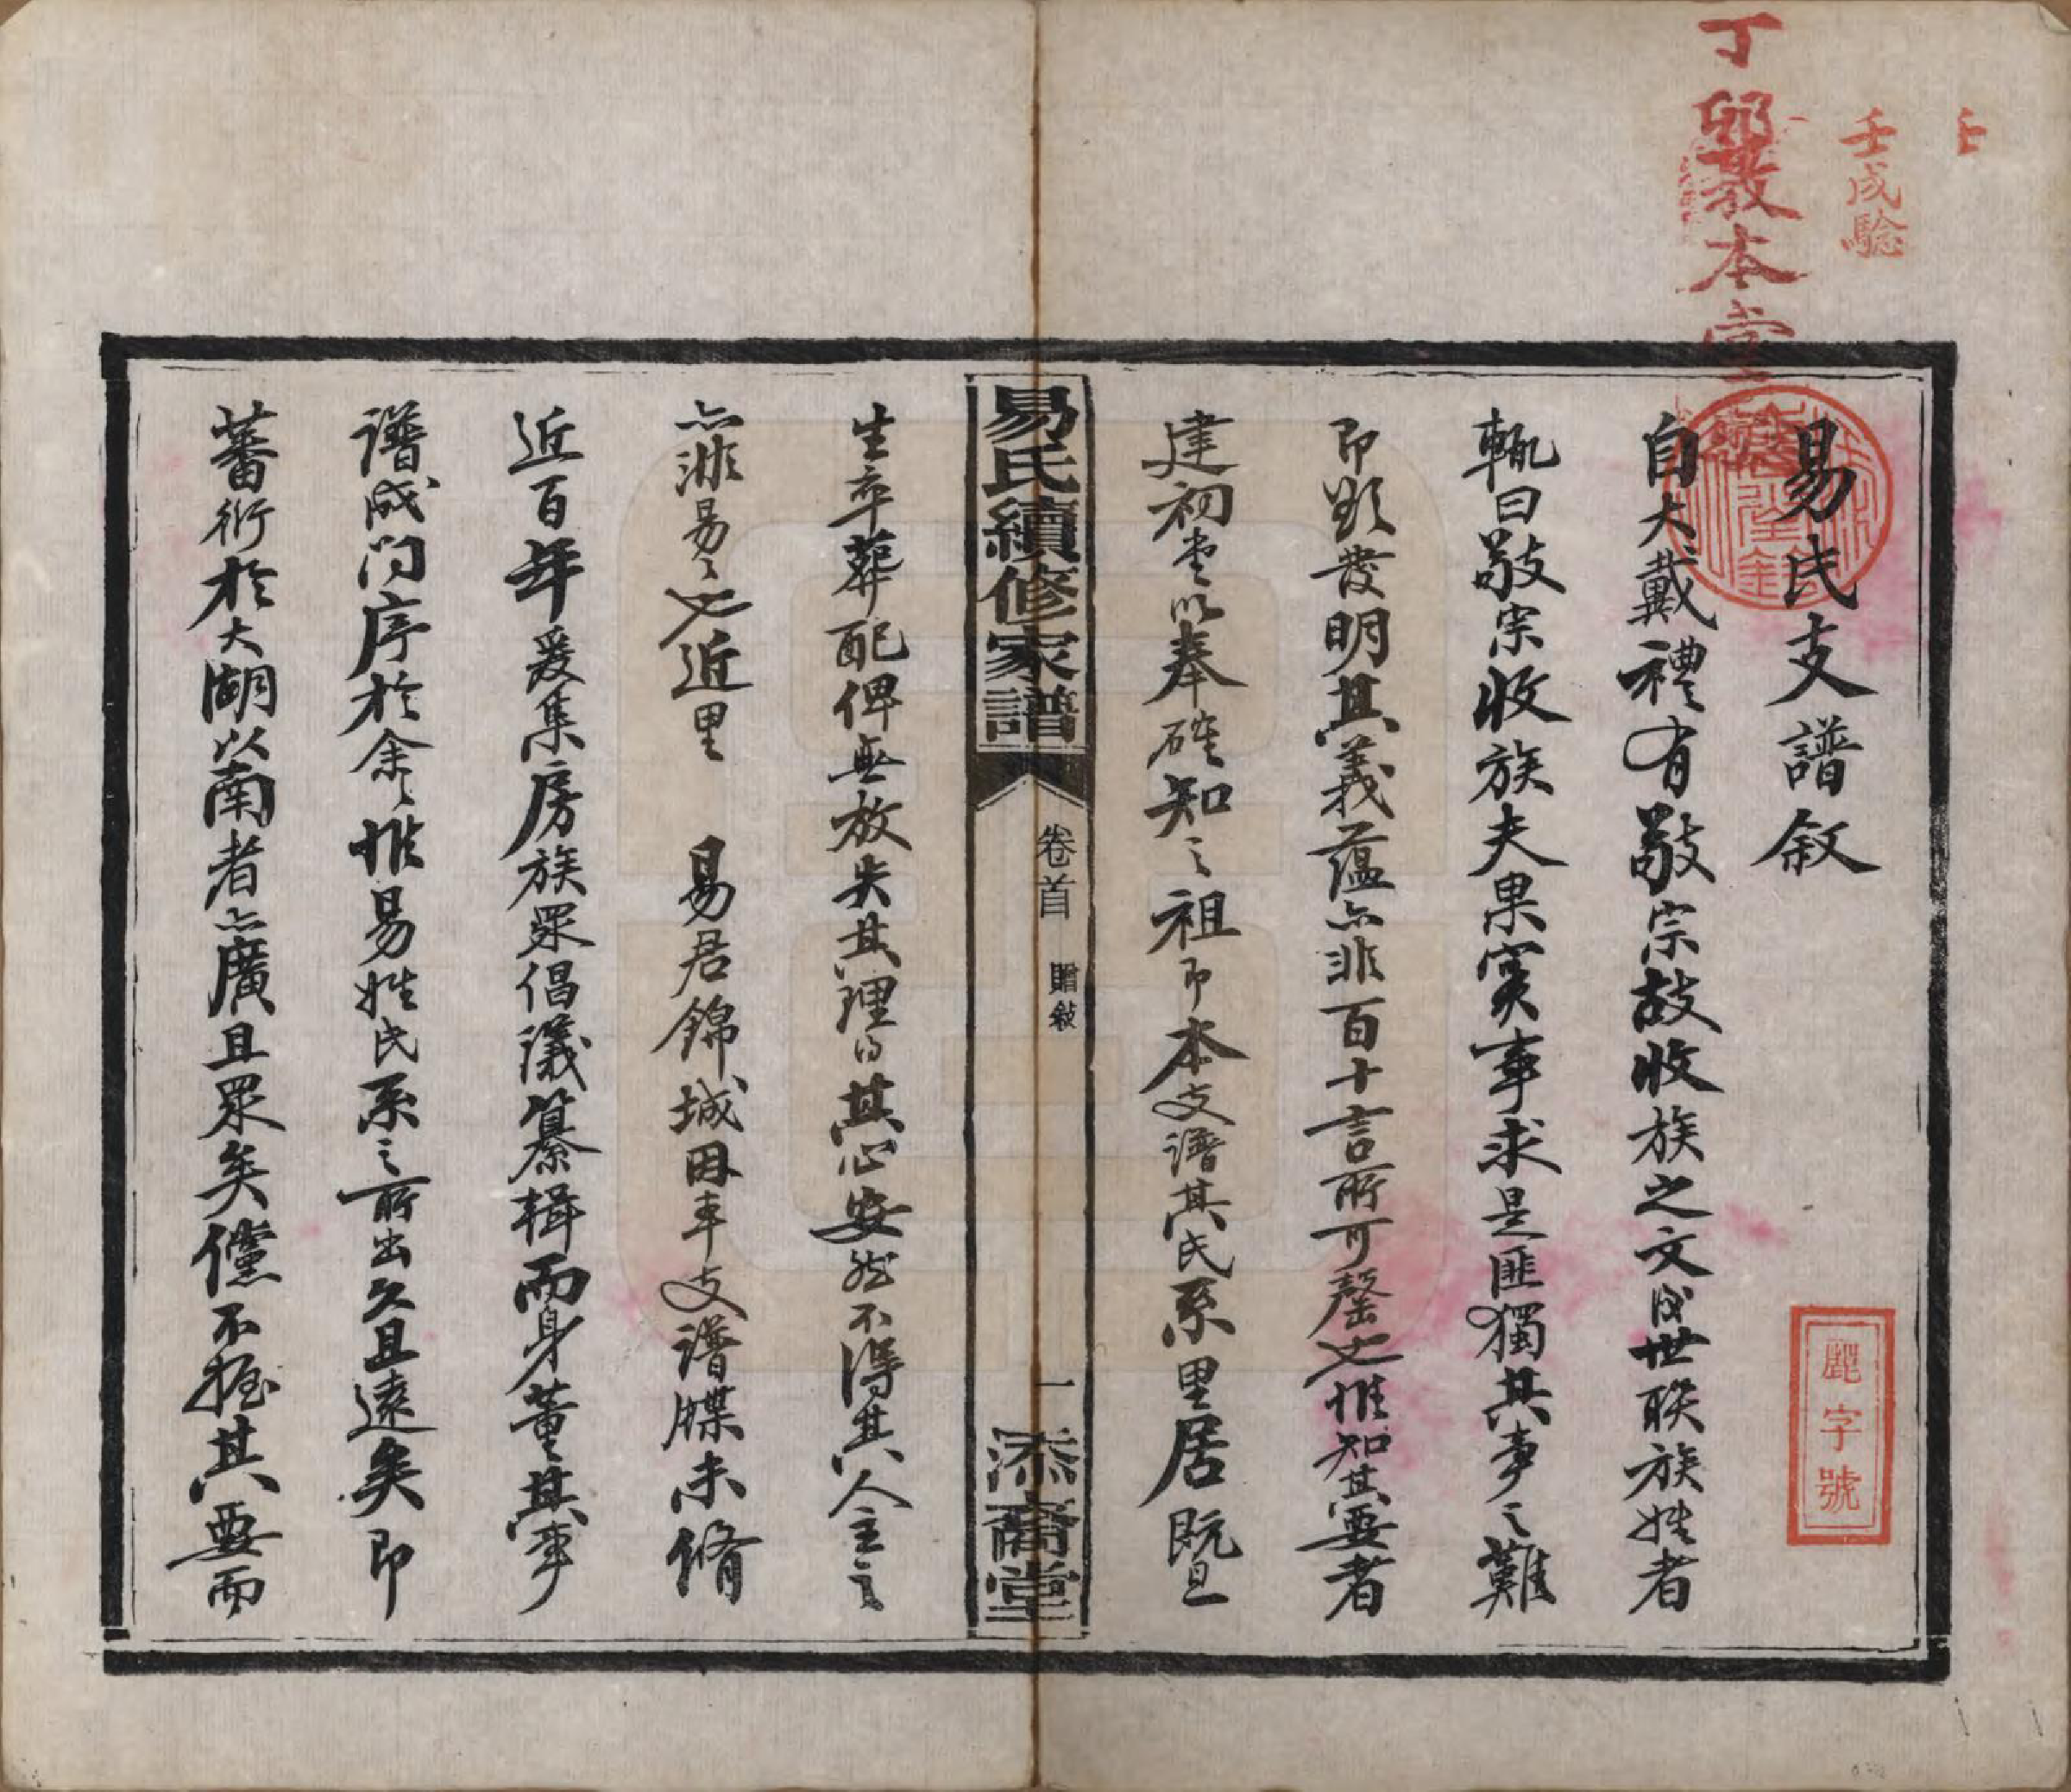 丁卯敦本堂
壬戌驗
壬
易氏支譜叙
自大戴禮有敬宗故收族之文後世聯族姓者
輒曰敬宗收族夫果實事求是匪獨其事之難
即顯發明其義蘊亦非百十言所可罄也惟知其要者
建初堂以奉確知之祖即本支譜其氏系里居既
生卒葬配俾無放失其理得其心安然不得其人全之
亦非易易也近里 易君錦城因本支譜牒未脩
近百年爰集房族眾倡議纂輯而身董其事
譜成问序於余余惟易姓氏系之所出久且遠矣即
蕃衍於大湖以南者亦廣且眾矣儻不握其要而
易氏續修家譜
卷首
贈敍
一
添裔堂
字號